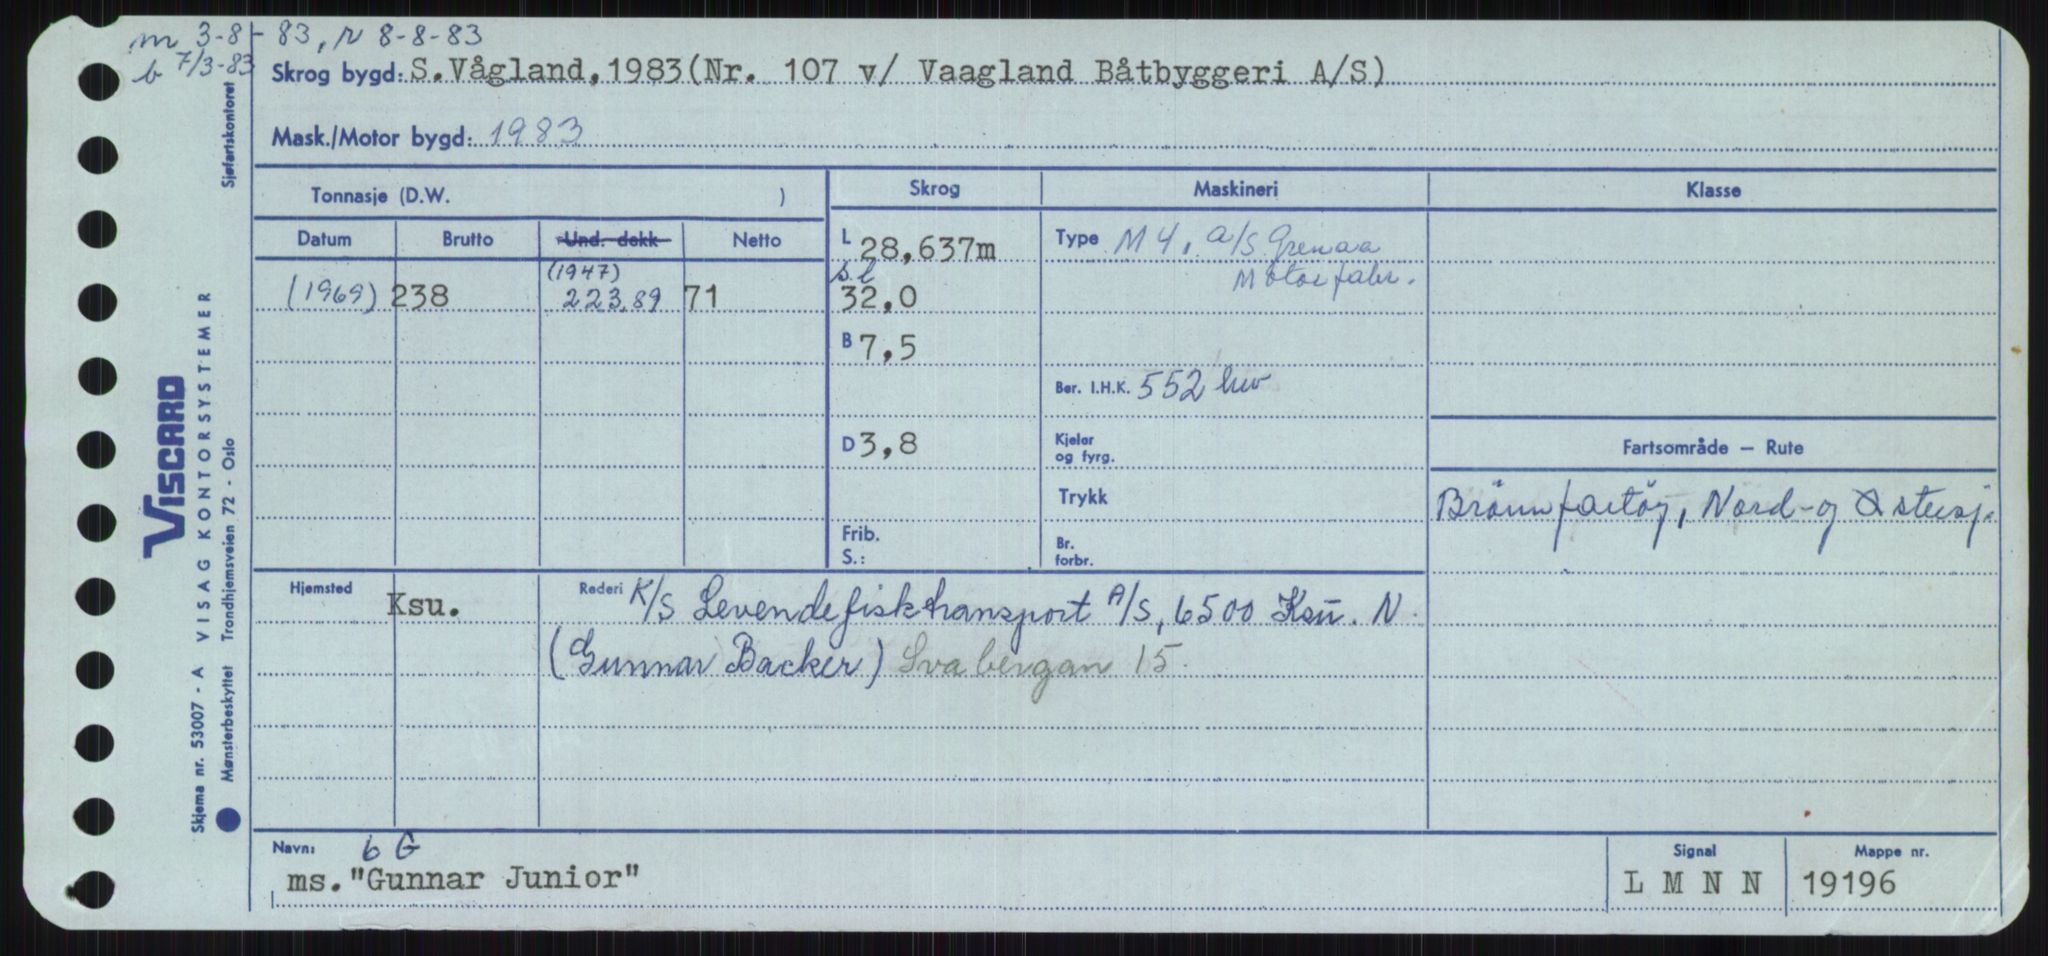 m 3-8-83, r 8-8-83
b 7/3-83
Skrog bygd: S.Vågland, 1983(Nr. 107 v/ Vaagland Båtbyggeri A/S)
Mask./Motor bygd: 1983
Tonnasje (D.W. )
Skrog
Maskineri
Klasse
Datum Brutto Und. dekk Netto
(1969) 238 (1947) 223,89 71
L 28,637m
s l
32,0
B 7,5
D 3,8
Frib.
S.:
Type M 4, A/S Grenaa
Motorfabr.
Ber. I.H.K. 552 hw
Kjeler
og fyrg.
Trykk
Br.
forbr.
Fartsområde — Rute
Brönnfartöy, Nord- og Östersj.
Hjemsted Ksu.
Rederi K/S Levendefisktransport A/S, 6500 Ksu. N.
(Gunnar Backer) Svabergan 15.
Navn: 6 G
ms."Gunnar Junior"
Signal
L M N N
Mappe nr.
19196
Sjøfartskontoret
VISCARD
Skjema nr. 53007 - A VISAG KONTORSYSTEMER
Mønsterbeskyttet Trondhjemsveien 72 - Oslo